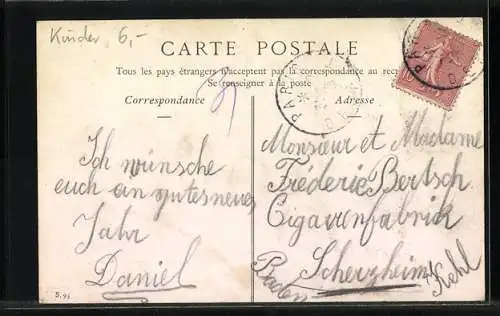 Kinder 6,-
CARTE POSTALE
Tous les pays étrangers n'acceptent pas la correspondance au recto
Se renseigner à la poste
Correspondance
Adresse
PARIS
PARIS
Ich wünsche
euch ein gutes neues
Jahr
Daniel
Monsieur et Madame
Fréderic Bertsch
Cigarrenfabrik
Scherzheim
Baden
Kehl